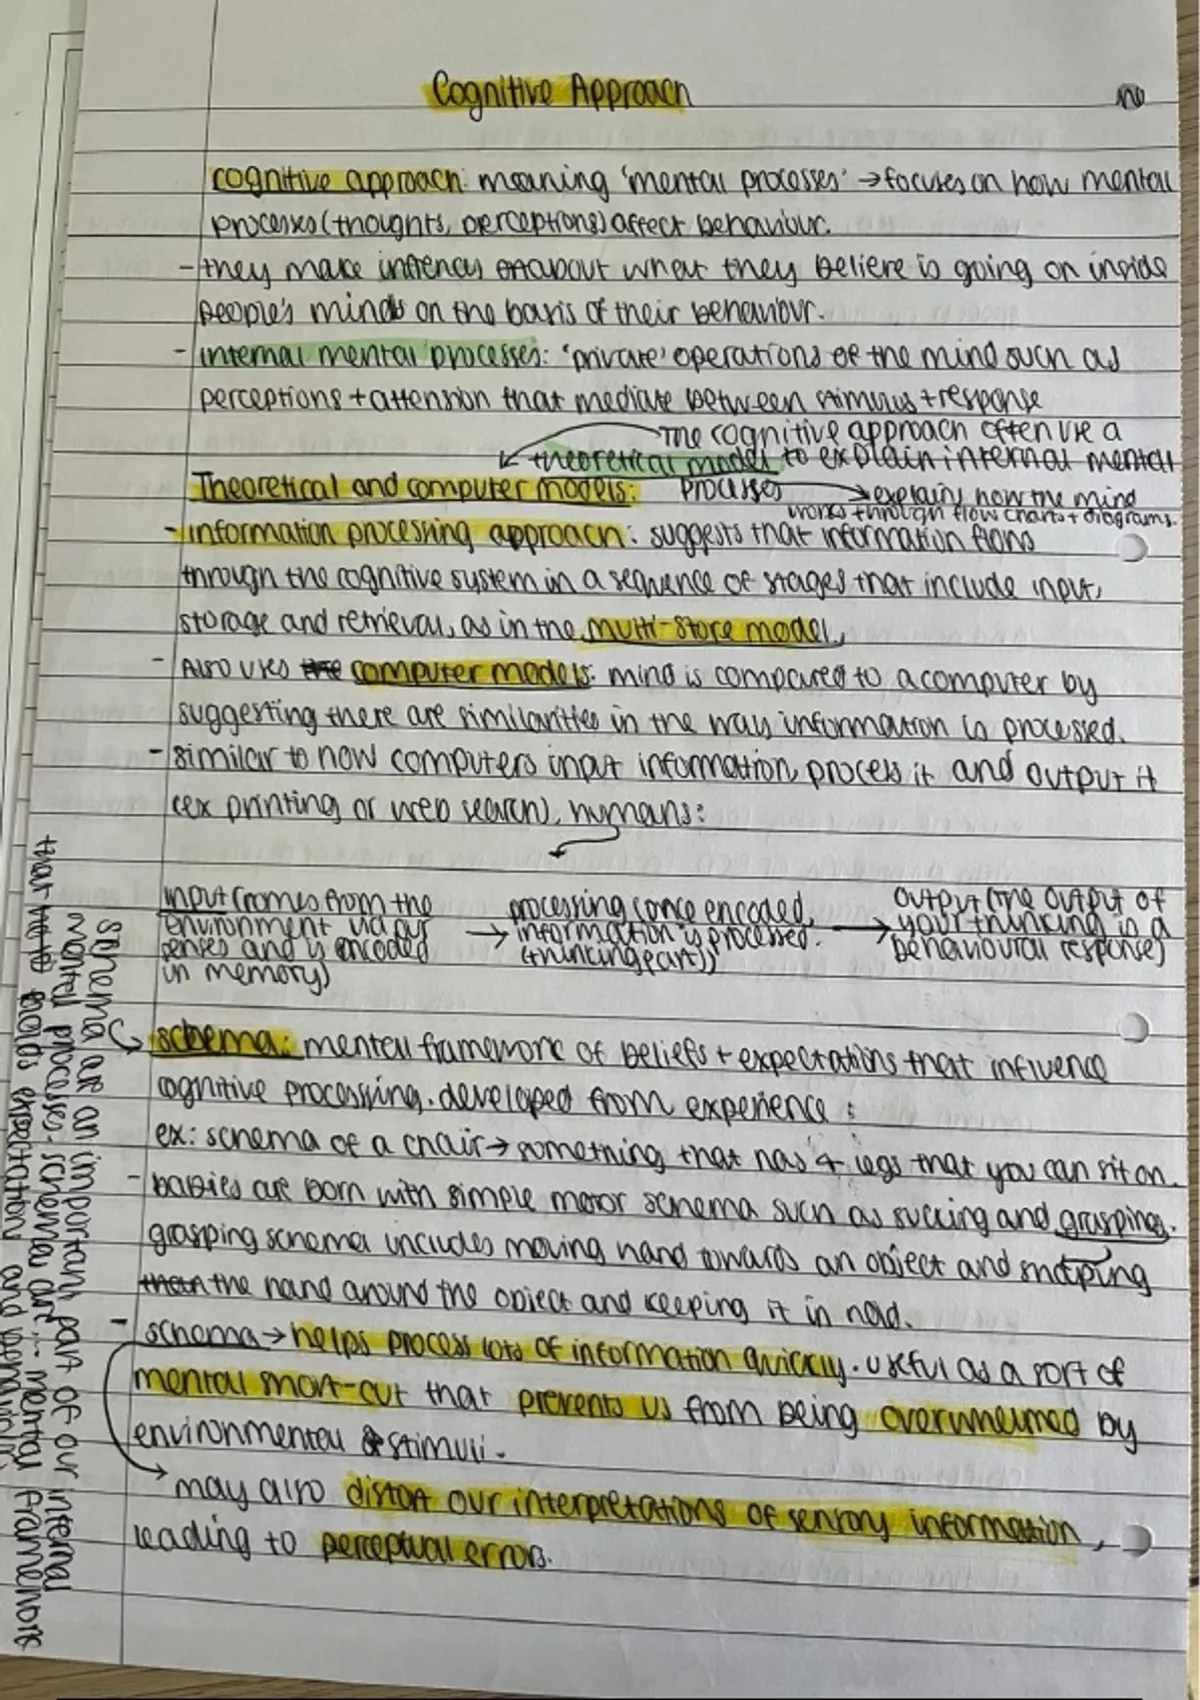 Cognitive Approach
no
cognitive approach: meaning 'mental processes' → focuses on how mental
processes (thoughts, perceptions) affect behaviour.
- they make inferences about what they believe is going on inside
people's minds on the basis of their behaviour.
- internal mental processes: 'private' operations of the mind such as
perceptions + attension that mediate between stimulus + response
The cognitive approach often use a
theoretical model to explain internal mental
processes → explains how the mind
works through flow charts + diagrams.
Theoretical and computer models:
- information processing approach: suggests that information flows
through the cognitive system in a sequence of stages that include input,
storage and retrieval, as in the multi-store model,
- Also uses the computer models: mind is compared to a computer by
suggesting there are similarities in the way information is processed.
- similar to how computers input information, process it and output it
(ex printing or web search), humans:
input (comes from the
environment via our
senses and is encoded
in memory)
→ processing (once encoded,
information is processed.
(thinking part))
→ output (the output of
your thinking is a
behavioural response)
schema: mental framework of beliefs + expectations that influence
cognitive processing. developed from experience:
ex: schema of a chair → something that has 4 legs that you can sit on.
- babies are born with simple motor schema such as sucking and grasping.
grasping schema includes moving hand towards an object and shaping
than the hand around the object and keeping it in hand.
- schema → helps process lots of information quickly. useful as a sort of
mental short-cut that prevents us from being overwhelmed by
environmental stimuli.
→ may also distort our interpretations of sensory information,
leading to perceptual errors.
schema are an important part of our internal
mental processes. schemas are... mental framework
that holds expectations and